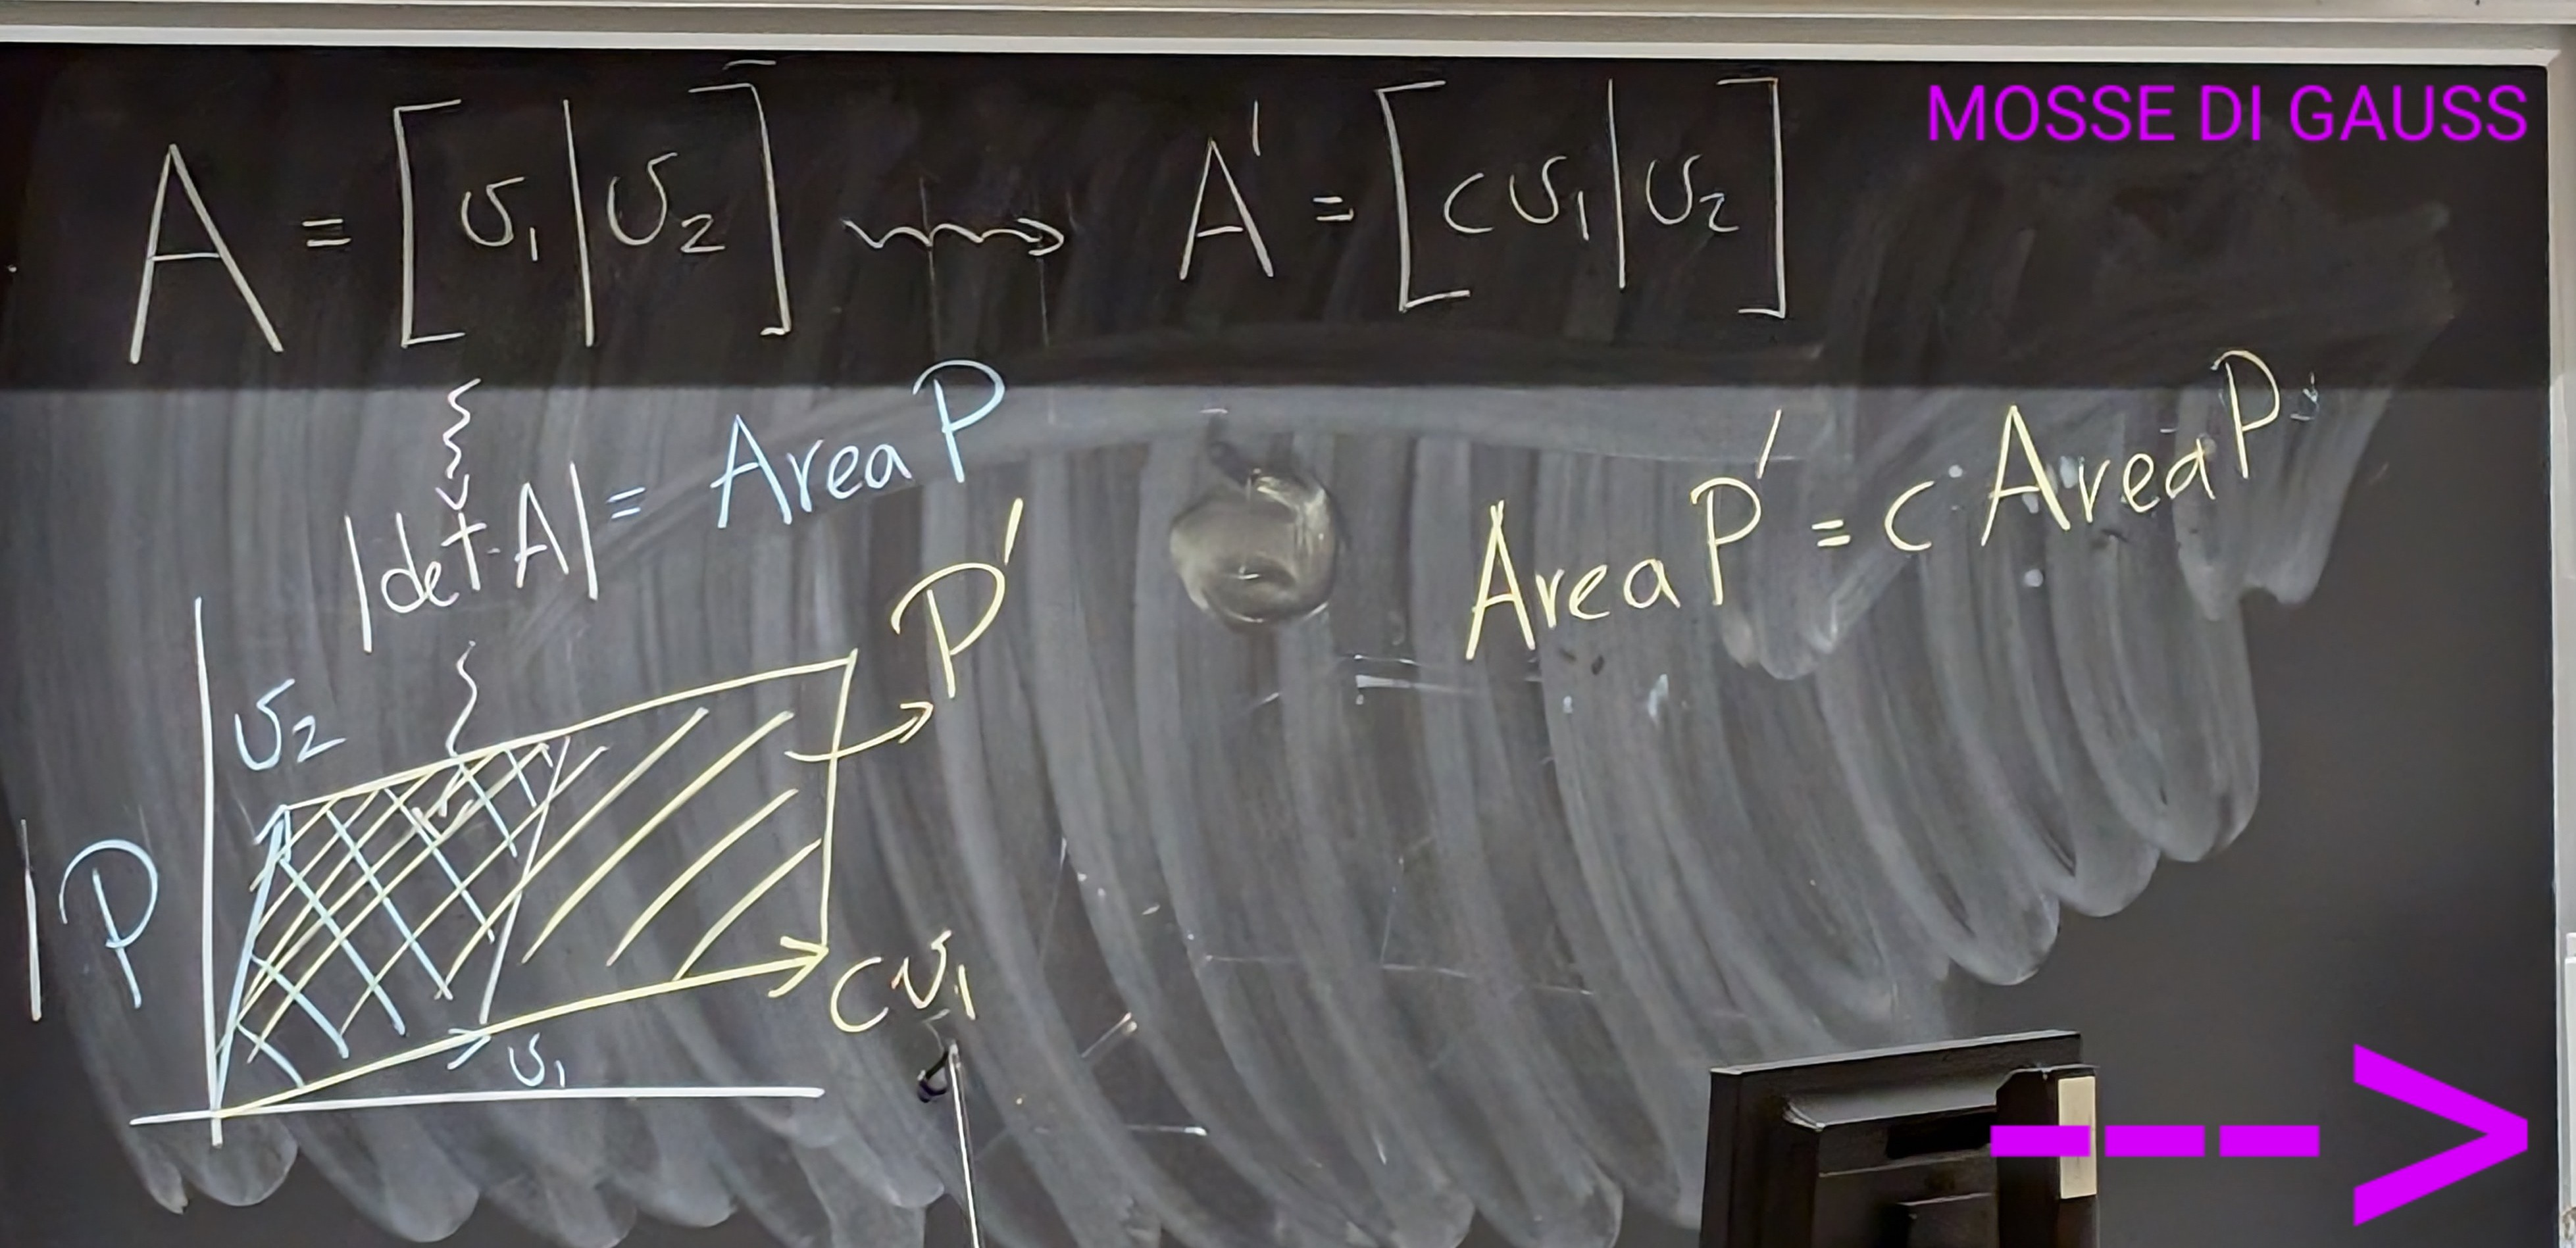 MOSSE DI GAUSS
A = [v₁ | v₂] ⟿ A' = [cv₁ | v₂]
|det A| = Area P
Area P' = c Area P
P'
v₂
P
cv₁
v₁
--->